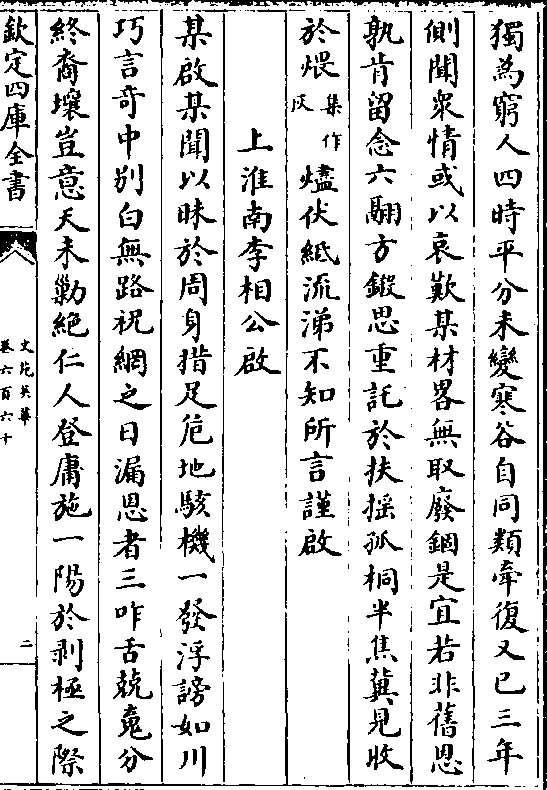 獨為窮人四時平分未變寒谷自同類牽復又已三年
側聞衆情或以哀歎某材畧無取廢錮是宜若非舊恩
孰肯留念六翮方鎩思重託於扶揺孤桐半焦冀見收
於煨集作灰燼伏紙流涕不知所言謹啟
上淮南李相公啟
某啟某聞以昧於周身猎足危地駭機一發浮謗如川
巧言奇中别白無路祝網之日漏恩者三咋舌兢䰟分
終裔壤豈意天未勦絶仁人登庸施一陽於剥極之際
欽定四庫全書
文苑英華
卷六百六十
二